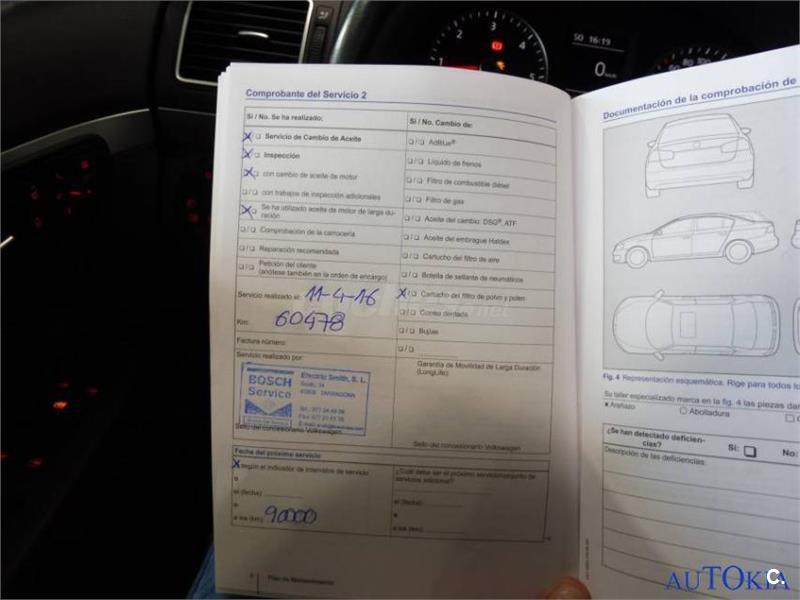 1 2 3 4 5
SO 16:19
0 km/h
80 100
Comprobante del Servicio 2
Sí / No. Se ha realizado:
X/❏ Servicio de Cambio de Aceite
X/❏ Inspección
X/❏ con cambio de aceite de motor
❏/❏ con trabajos de inspección adicionales
X/❏ Se ha utilizado aceite de motor de larga du-
ración
❏/❏ Comprobación de la carrocería
❏/❏ Reparación recomendada
❏/❏ Petición del cliente
(anótese también en la orden de encargo)
Servicio realizado el: 11-4-16
Km: 60478
Factura número:
Servicio realizado por:
BOSCH
Service
Electric Smith, S. L.
Smith, 34
TARRAGONA
Tel.: 977
Fax: 977
E-mail:
Sello del concesionario Volkswagen
Sí / No. Cambio de:
❏/❏ AdBlue®
❏/❏ Líquido de frenos
❏/❏ Filtro de combustible diésel
❏/❏ Filtro de gas
❏/❏ Aceite del cambio: DSG®, ATF
❏/❏ Aceite del embrague Haldex
❏/❏ Cartucho del filtro de aire
❏/❏ Botella de sellante de neumáticos
X/❏ Cartucho del filtro de polvo y polen
❏/❏ Correa dentada
❏/❏ Bujías
❏/❏
Garantía de Movilidad de Larga Duración
(LongLife)
Sello del concesionario Volkswagen
Fecha del próximo servicio
X según el indicador de intervalos de servicio
o
el (fecha):
o
a los (km): 90000
¿Cuál debe ser el próximo servicio/conjunto de
servicios adicional?
el (fecha):
a los (km):
Plan de Mantenimiento
Documentación de la comprobación de
Fig. 4 Representación esquemática. Rige para todos lo
Su taller especializado marca en la fig. 4 las piezas dañ
× Arañazo ○ Abolladura
¿Se han detectado deficien-
cias? Sí: ❏ No:
Descripción de las deficiencias:
coches.net
AUTOKIA
C.